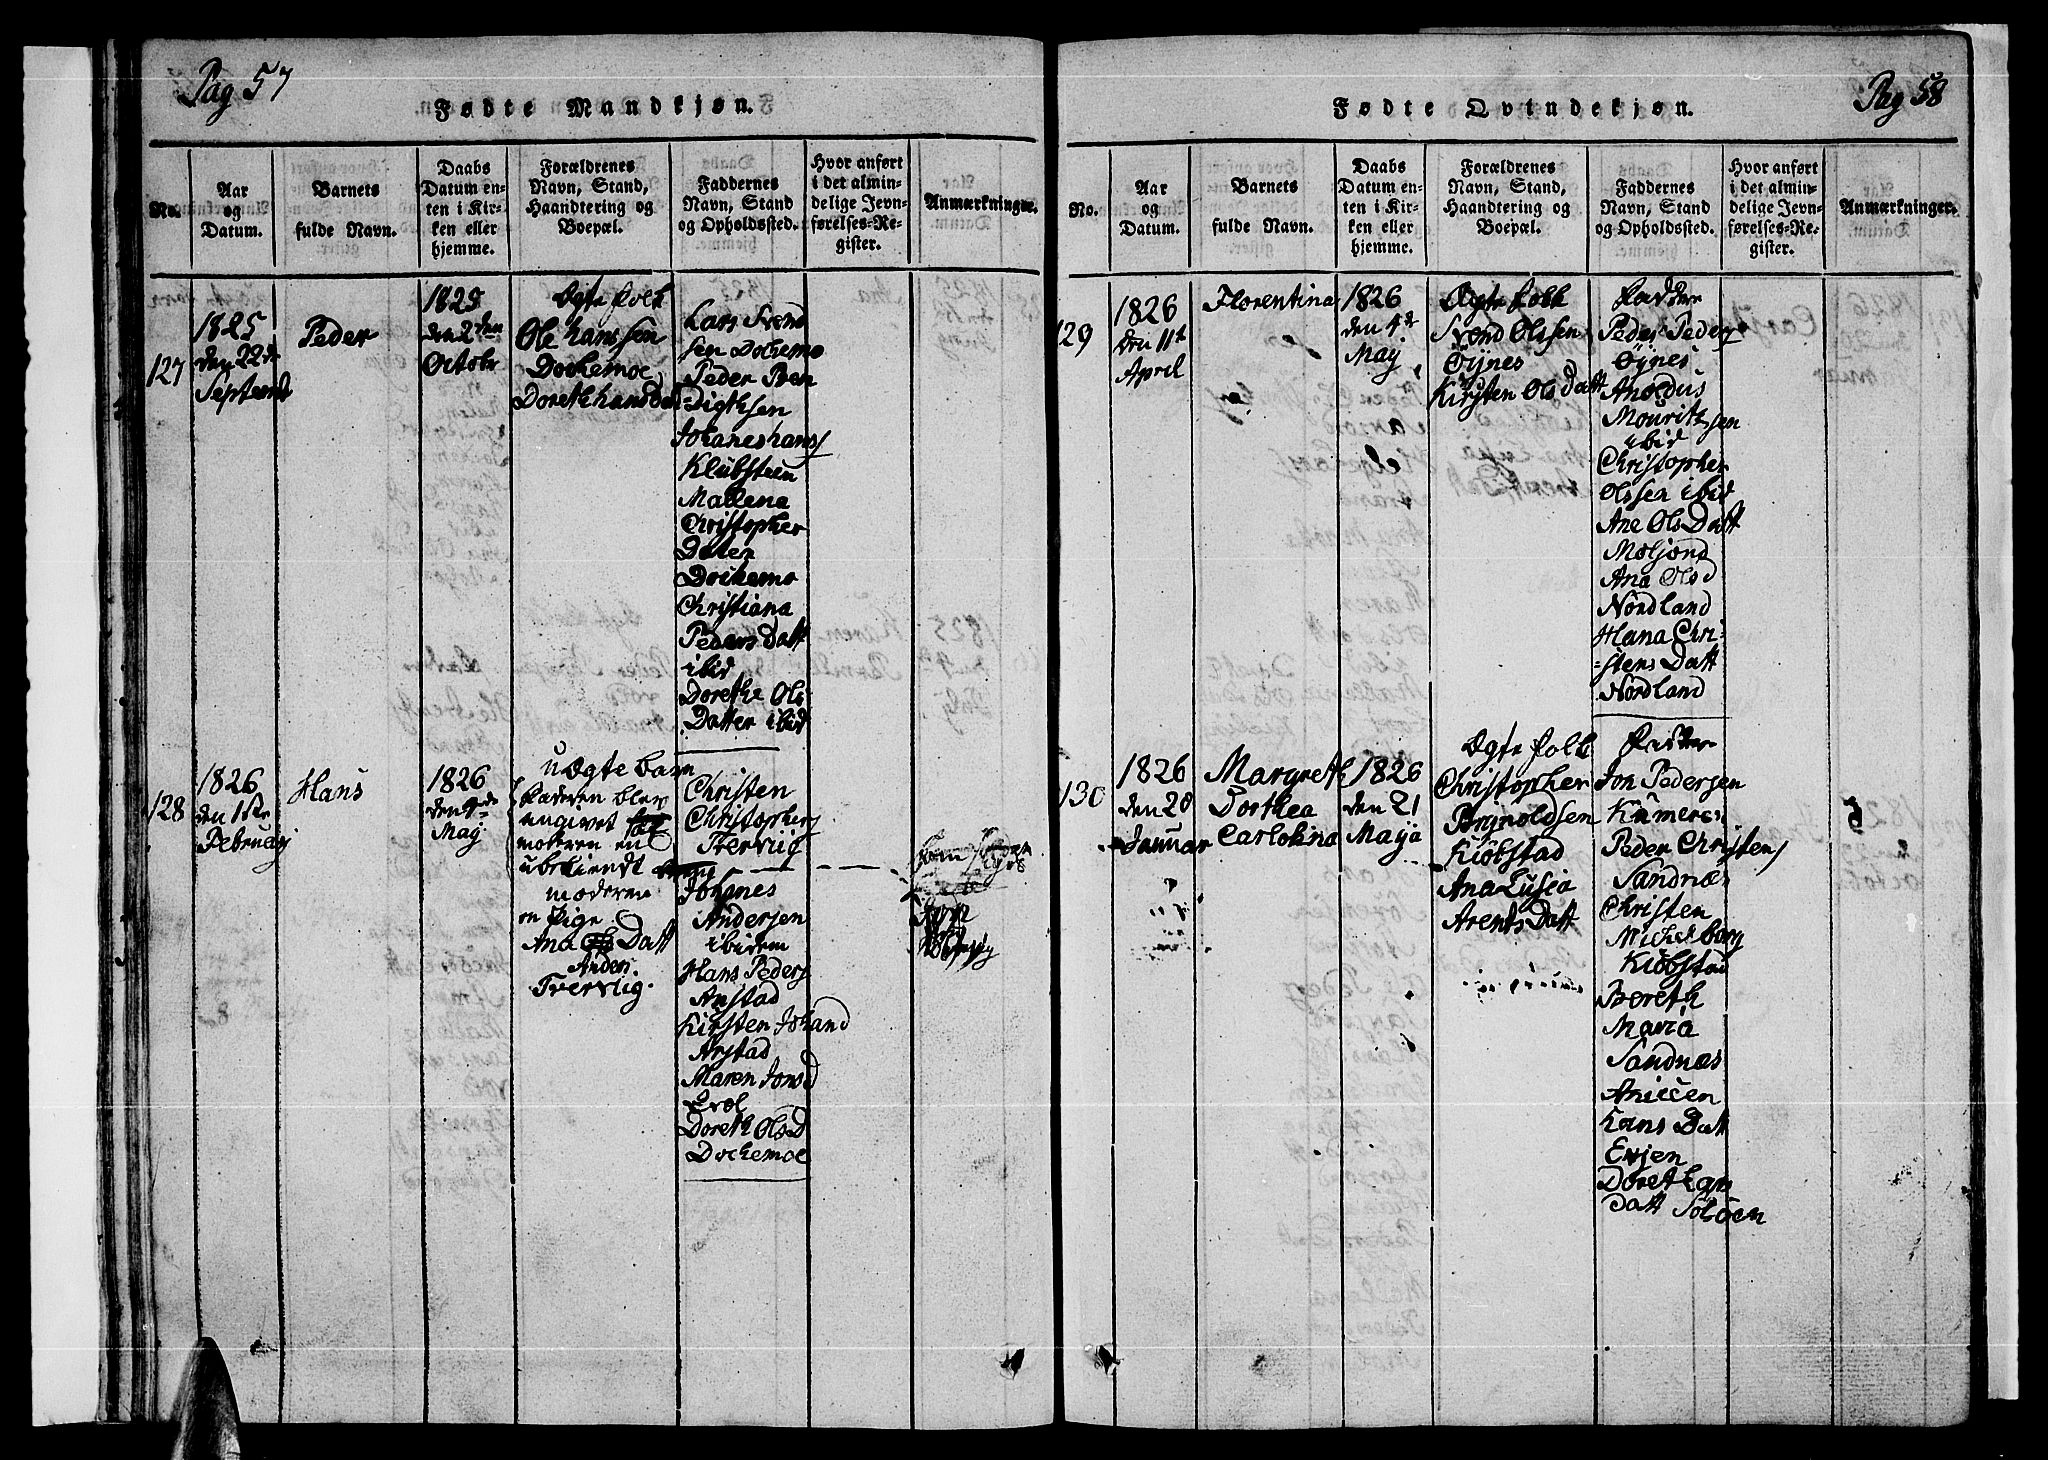 Pag 57
Fødte Mandkjøn.
No.
Aar
og
Datum.
Barnets
fulde Navn.
Daabs
Datum en-
ten i Kir-
ken eller
hjemme.
Forældrenes
Navn, Stand,
Haandtering og
Boepæl.
Faddernes
Navn, Stand
og Opholdssted.
Hvor anført
i det almin-
delige Jevn-
førelses-Re-
gister.
Anmærkninger.
127
1825
den 22de
Septemb
Peder
1825
den 2den
Octobr
Ægte folk
Ole hanssen
Dochemoe
Doreth hansDat
Lars Svend
sen Dochemo
Peder Ben
=digtsen
Johanes hans
Klubsteen
Mallena
Christopher
Dater
Dochemo
Christiana
Peders Datt
ibid
Dorethe Ols
Datter ibid
128
1826
den 1ste
Februarj
Hans
1826
den 4de
Maj
uÆgte barn
Faderen blev
angivet
moderen en
ubekiendt
moderen
en Pige
Ana Datt
Anders
Tverviig.
Christen
Christophers
Tverviig
Johanes
Andersen
ibidem
Hans Peders
Arstad
Kirsten Johand
Arstad
Maren Jonsd
Evol
Doreth OlsD
Dochemoe
Pag 58
Fødte Qvindekjøn.
No.
Aar
og
Datum.
Barnets
fulde Navn.
Daabs
Datum en-
ten i Kir-
ken eller
hjemme.
Forældrenes
Navn, Stand,
Haandtering og
Boepæl.
Faddernes
Navn, Stand
og Opholdssted.
Hvor anført
i det almin-
delige Jevn-
førelses-Re-
gister.
Anmærkninger.
129
1826
den 11te
April
Florentina
1826
den 4de
Maj
Ægte folk
Svend Olssen
Øÿnes
Kirsten Ols Datt
Faddere
Peder Peders
Øÿnes
Anoldus
Mouritzsen
ibid
Christopher
Olssen ibid
Ane Ols Datt
Moljord
Ana Olsd
Nordland
Hana Chri-
=stens Datt
Nordland
130
1826
den 28
Januar
Margreth
Dorthea
Carlolina
1826
den 21
Maÿ
Ægte folk
Christopher
Brÿnoldsen
Kiöbstad
Ana Lusia
Arents Datt
Fadder
Jon Pedersen
Kummeren
Peder Christens
Sandnæs
Christen
Michelborg
Kiöbstad
Bereth
Maria
Sandnæs
Aniceen
Hans Datt
Evjen
Doreth
Datt Solöen